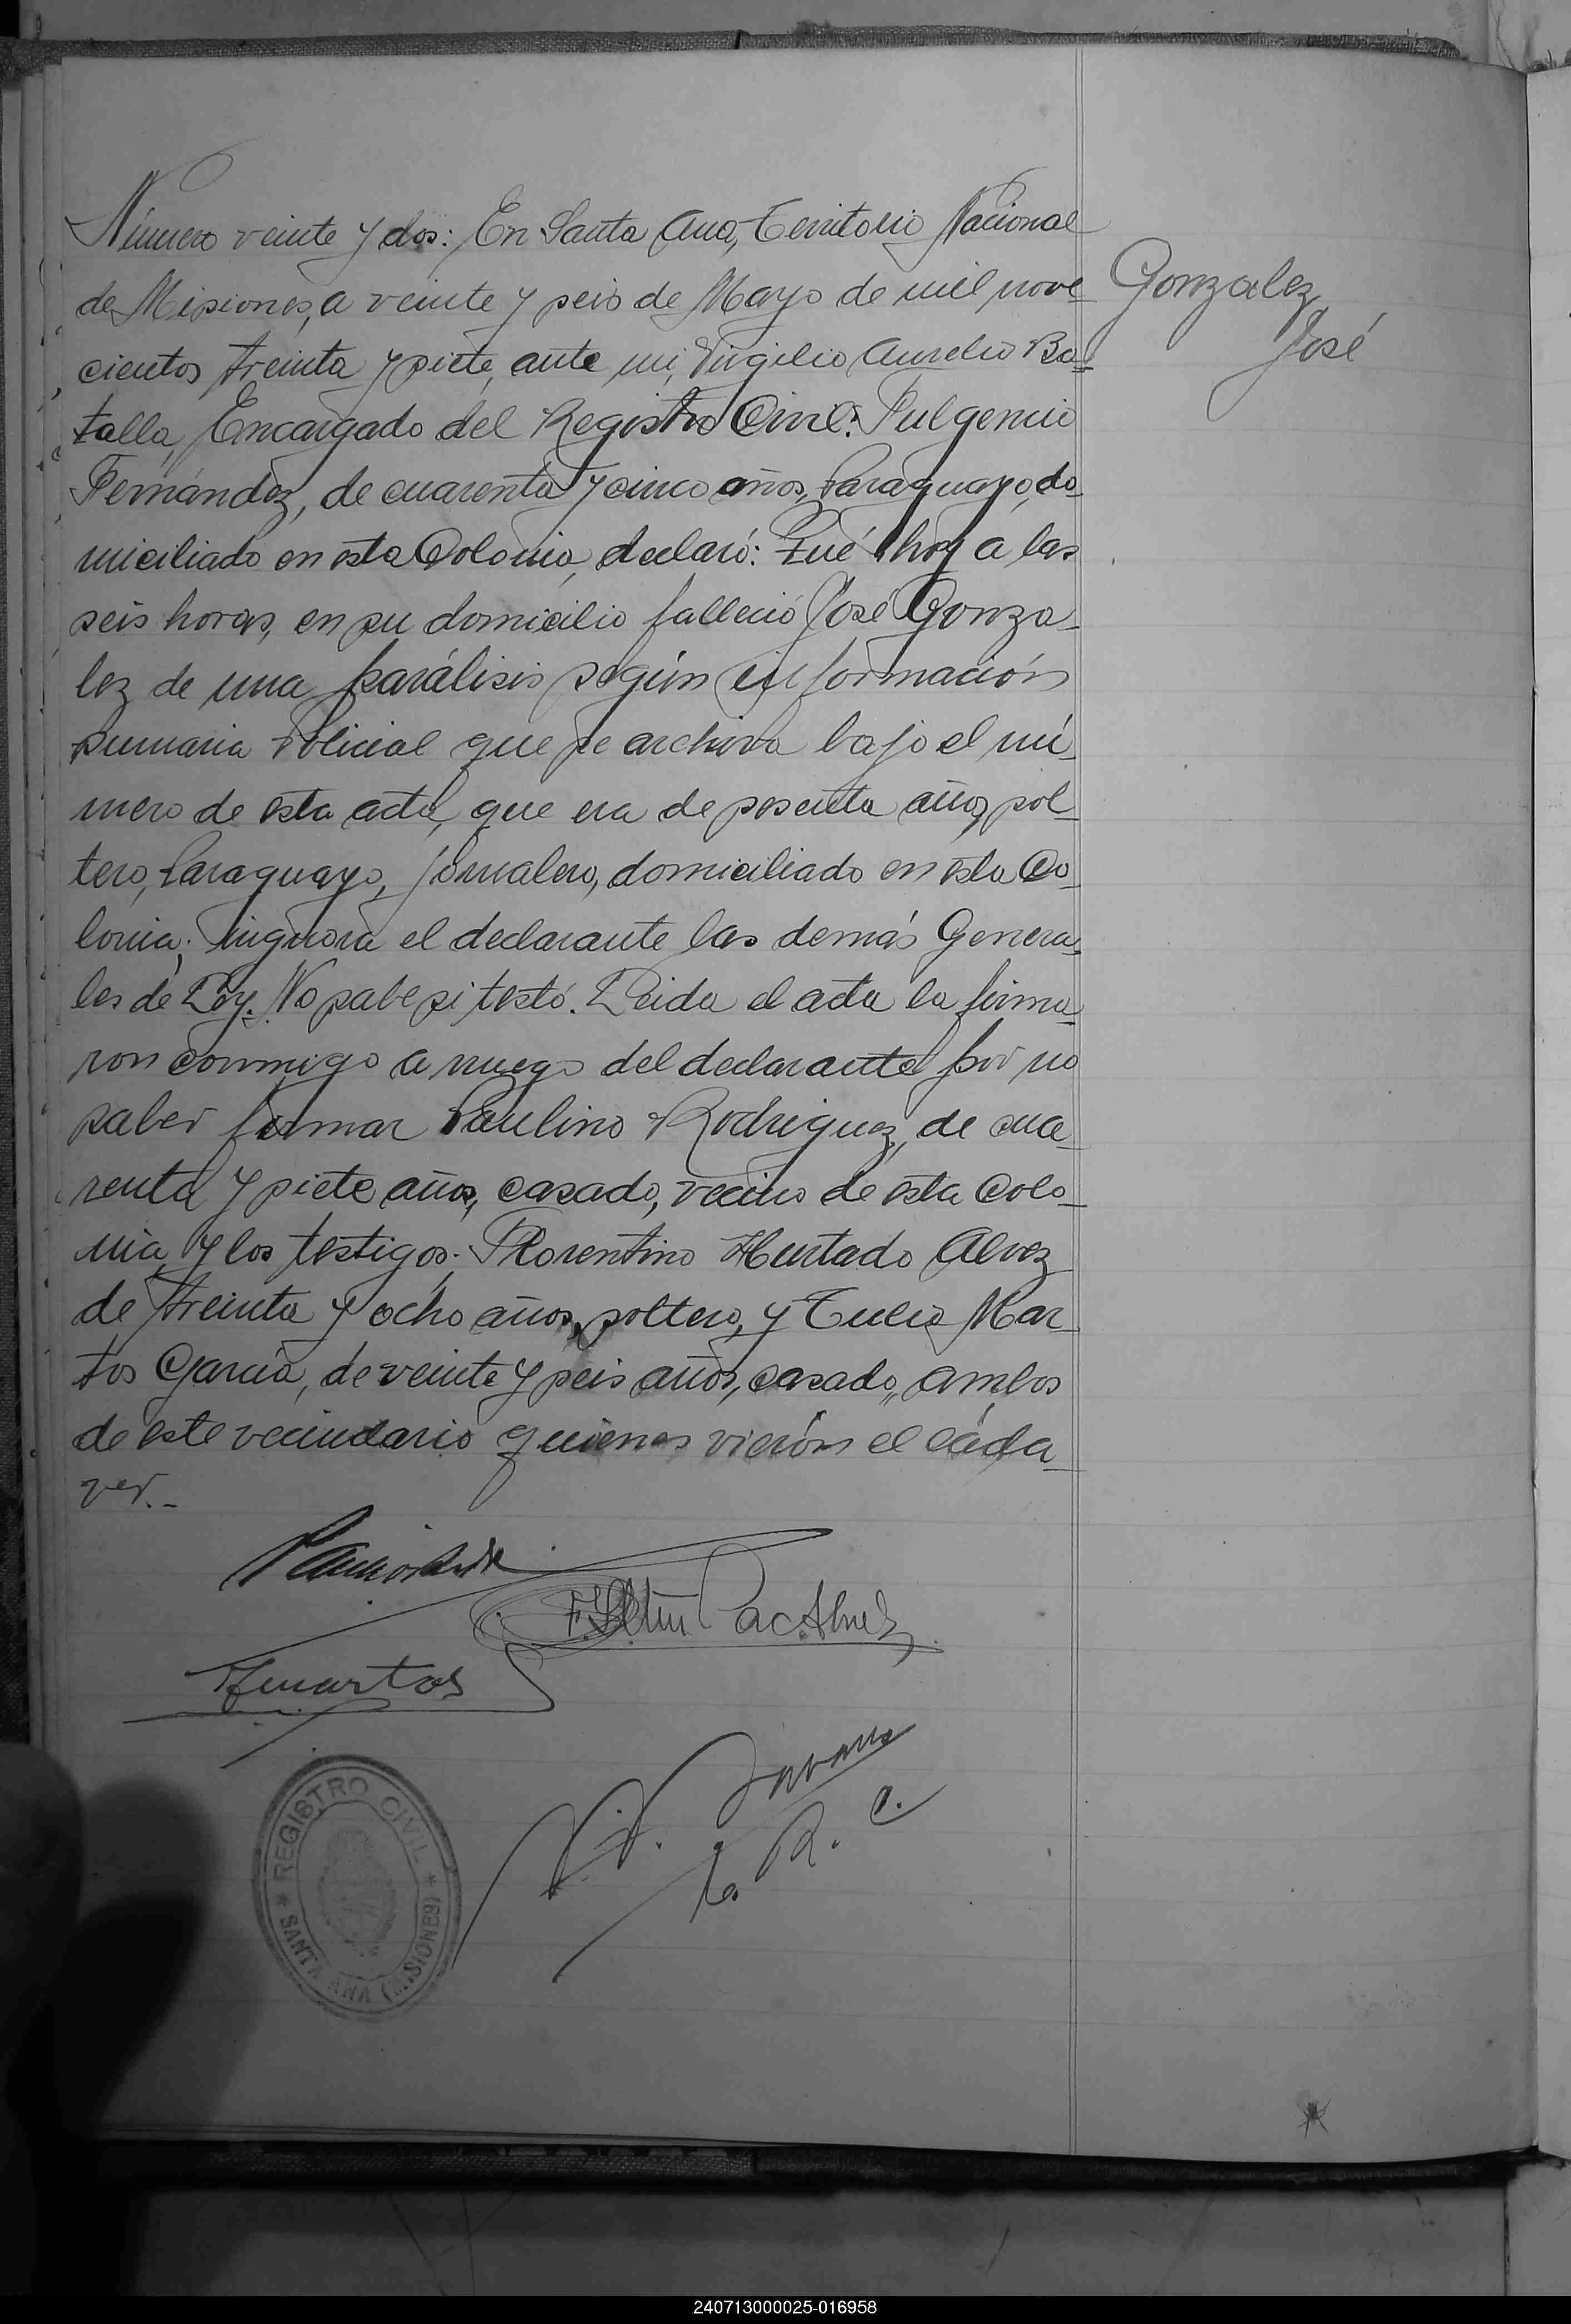 Número veinte y dos: En Santa Ana, Territorio Nacional
de Misiones, a veinte y seis de Mayo de mil nove-
cientos treinta y siete, ante mi, Virgilio Aurelio Ba-
talla, Encargado del Registro Civil: Fulgencio
Fernández, de cuarenta y cinco años, Paraguayo, do-
miciliado en esta Colonia, declaró: Qué hoy a las
seis horas, en su domicilio falleció José Gonza-
lez de una parálisis según información
sumaria Policial que se archiva bajo el nú-
mero de esta acta, que era de sesenta años, sol-
tero, Paraguayo, Jornalero, domiciliado en esta Co-
lonia; ingnora el declarante las demás Genera-
les de Ley. No sabe si testó. Leida el acta la firma-
ron conmigo a ruego del declarante por no
saber firmar Paulino Rodriguez, de cua-
renta y siete años, casado, vecino de esta Colo-
nia, y los testigos: Florentino Hurtado Alvez
de treinta y ocho años, soltero, y Tulio Mar-
tos García, de veinte y seis años, casado, ambos
de este vecindario quienes vierón el cáda-
ver.-
Gonzalez
José
Tmartos
E. R. C.
REGISTRO CIVIL
SANTA ANA (MISIONES)
240713000025-016958